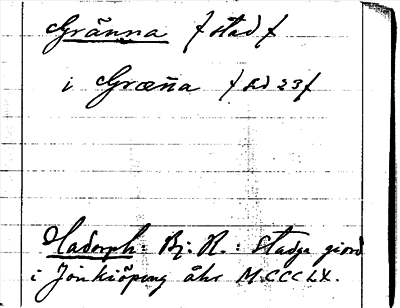 Gränna / stad /
i Græña / sid 23 /
Hadorph: Bj: R.: Stadga giord
i Jönkiöping åhr MCCCLX.